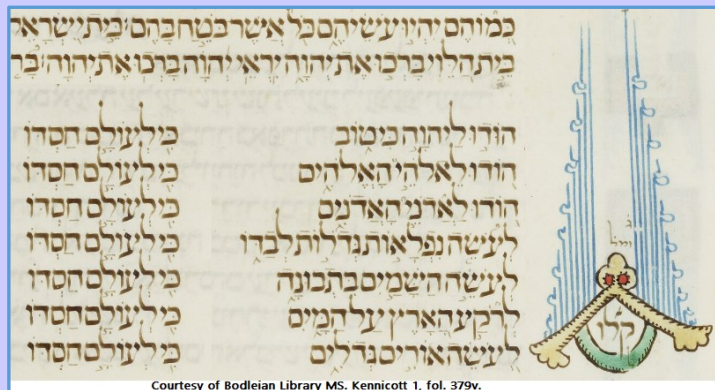 כְּמוֹהֶם יִהְיוּ עֹשֵׂיהֶם כֹּל אֲשֶׁר בֹּטֵחַ בָּהֶם׃ בֵּית יִשְׂרָאֵל
בֵּית הַלֵּוִי בָּרְכוּ אֶת יְהוָה יִרְאֵי יְהוָה בָּרְכוּ אֶת יְהוָה׃ בָּר
הוֹדוּ לַיהוָה כִּי טוֹב כִּי לְעוֹלָם חַסְדּוֹ
הוֹדוּ לֵאלֹהֵי הָאֱלֹהִים כִּי לְעוֹלָם חַסְדּוֹ
הוֹדוּ לַאֲדֹנֵי הָאֲדֹנִים כִּי לְעוֹלָם חַסְדּוֹ
לְעֹשֵׂה נִפְלָאוֹת גְּדֹלוֹת לְבַדּוֹ כִּי לְעוֹלָם חַסְדּוֹ
לְעֹשֵׂה הַשָּׁמַיִם בִּתְבוּנָה כִּי לְעוֹלָם חַסְדּוֹ
לְרֹקַע הָאָרֶץ עַל הַמָּיִם כִּי לְעוֹלָם חַסְדּוֹ
לְעֹשֵׂה אוֹרִים גְּדֹלִים כִּי לְעוֹלָם חַסְדּוֹ
קלו
Courtesy of Bodleian Library MS. Kennicott 1, fol. 379v.